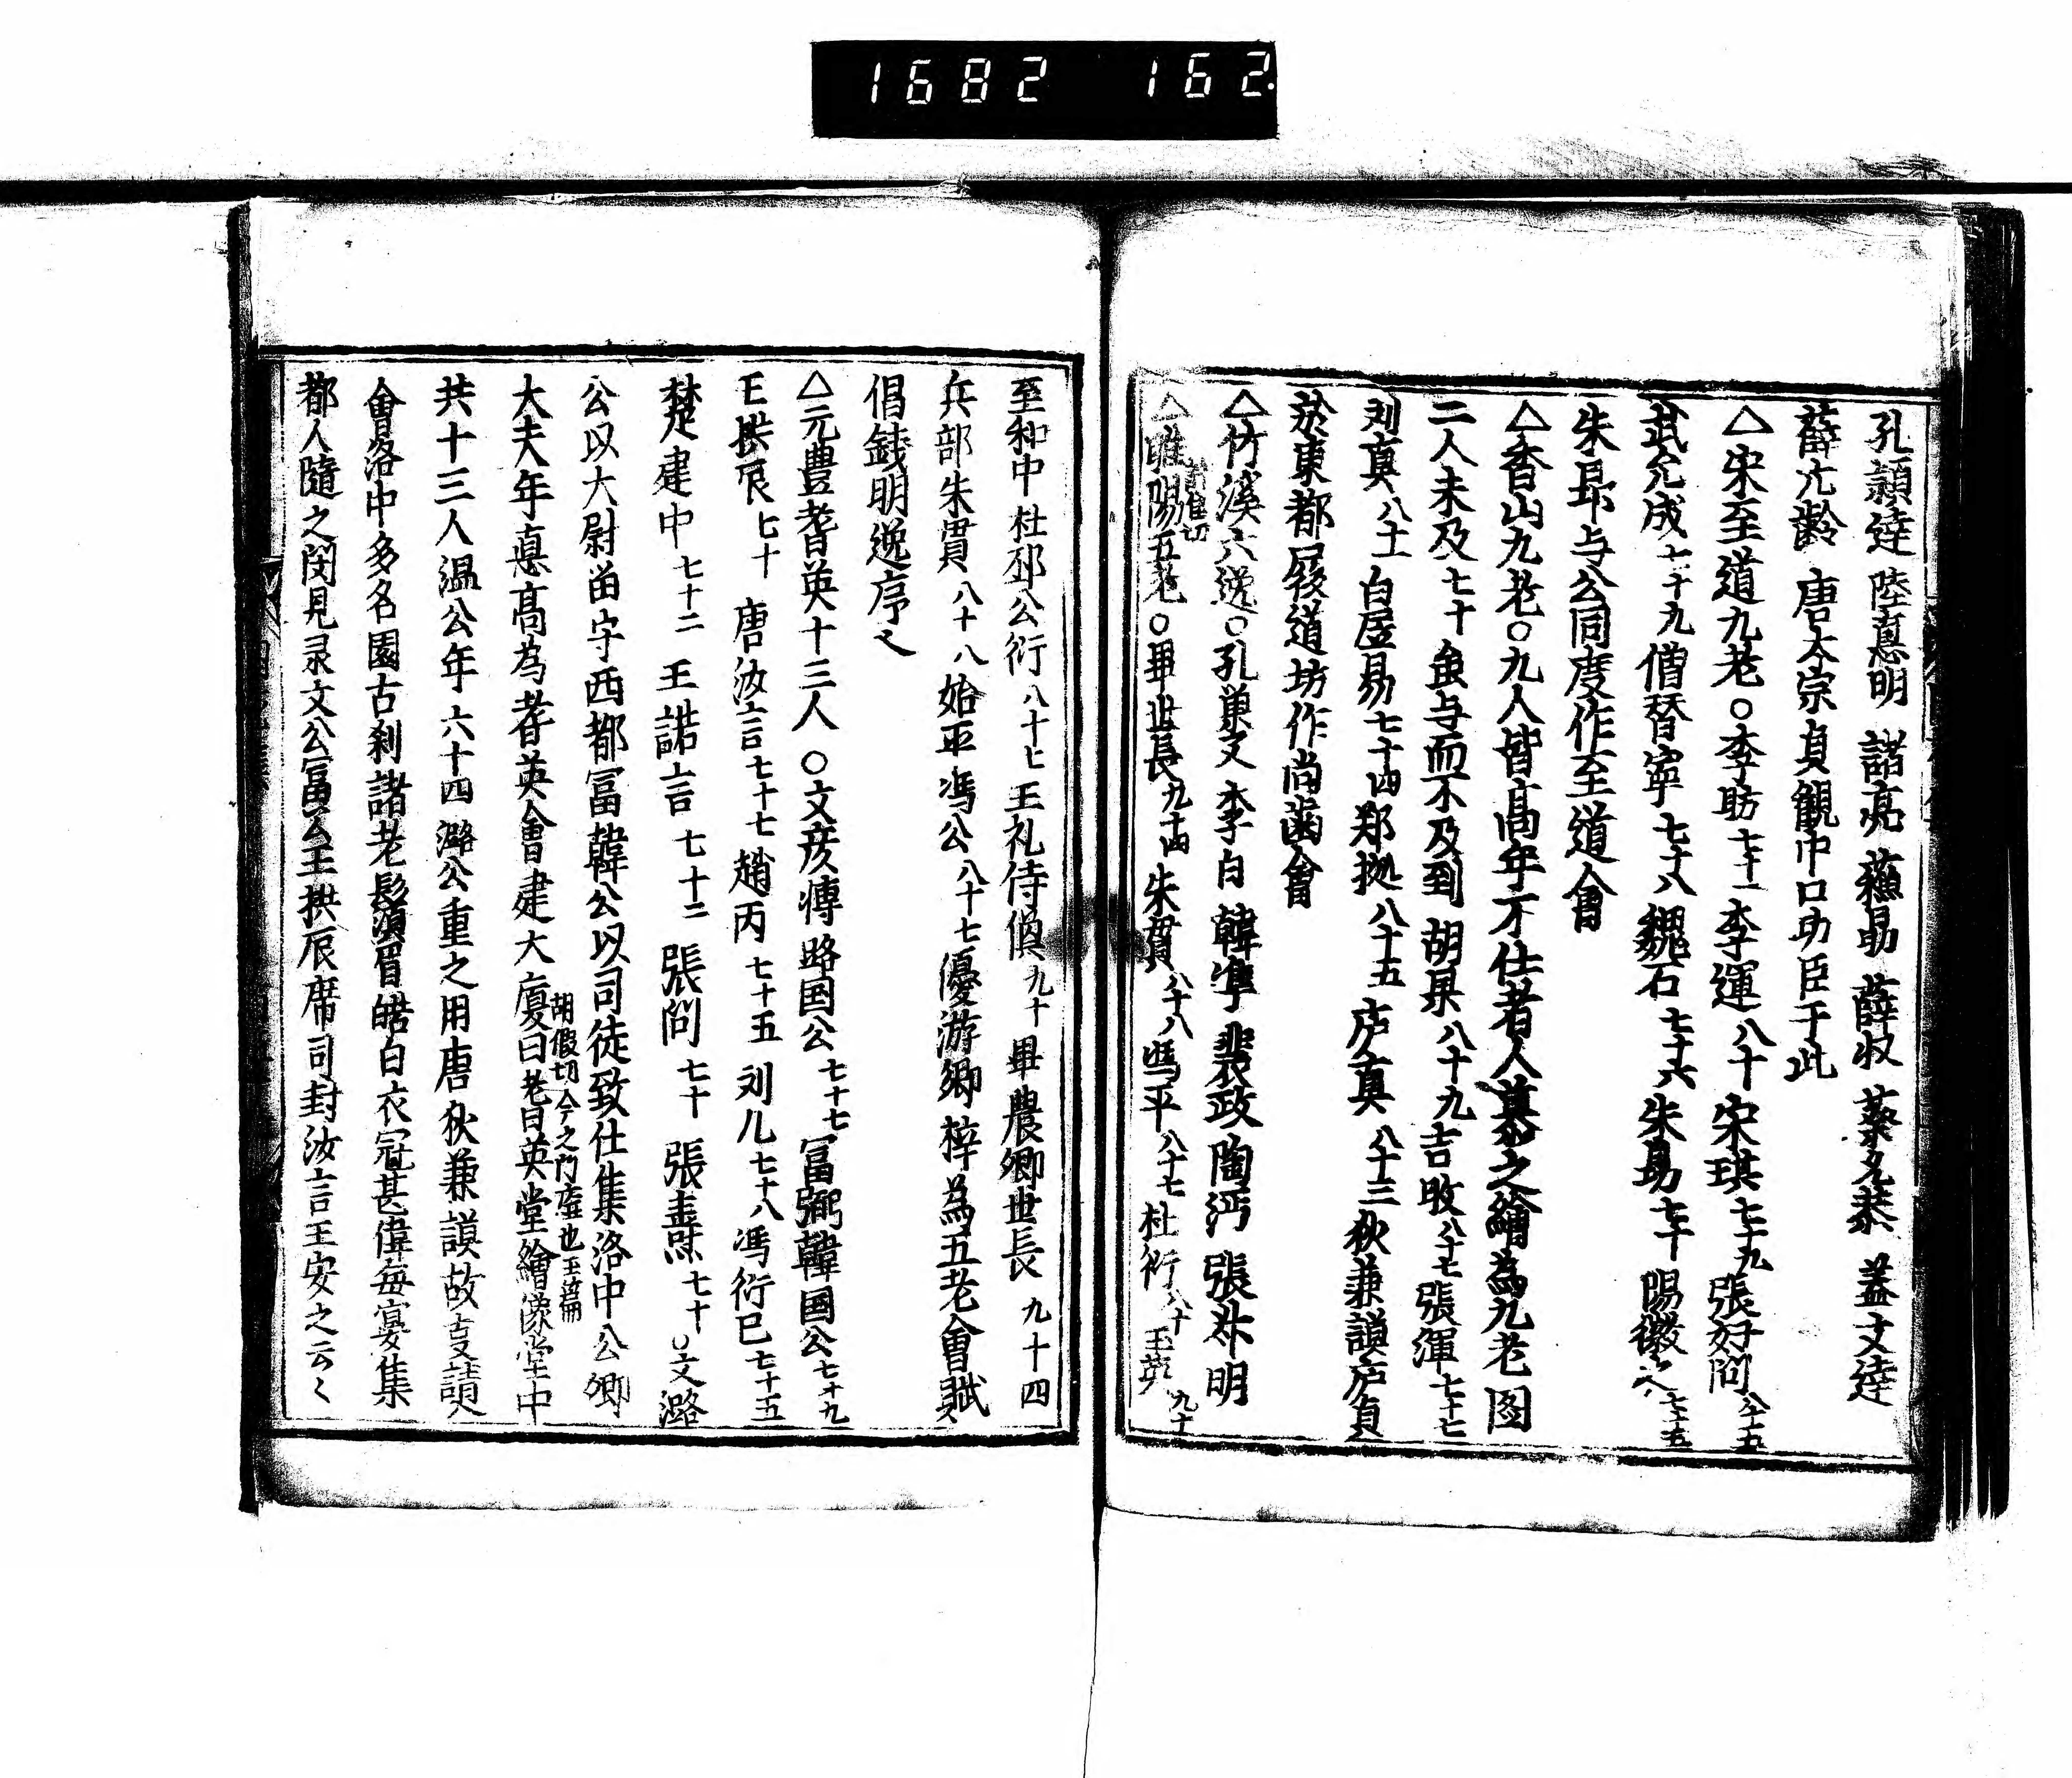 1682 162.
孔頴達 陸悳明 諸亮 蘓勗 薛收 蔡允恭 盖文逹
薛亢齡 唐太宗貞觀中口功臣于此
△宋至道九老○李昉七十一李運八十宋琪七十九張好問八十五
武允成七十九僧賛寧七十八魏石七十六朱昜七十陽徽之七十五
朱昻与公同度作至道會
△香山九老○九人皆髙年不仕者人慕之繪為九老图
二人未及七十虽与而不及到胡杲八十九吉旼八十七張渾七十七
刘真八十二白居易七十四郑㨿八十五庐真八十三狄兼謨庐貞
於東都履道坊作尚齒會
△竹溪六逸○孔巢父 李白 韓凖 裴政 陶沔 張叔明
△睢陽五老○畢世長九十四朱貫八十八馮平八十七杜衍八十王渙九十
至和中杜祁公衍八十七王礼侍渙九十畢農卿世長九十四
兵部朱貫八十八始平馮公八十七優游鄉梓為五老會賦
倡錢明逸序之
△元豊耆英十三人○文彦愽路国公七十七冨弼韓国公七十九
王拱辰七十 唐汝言七十七趙丙七十五刘几七十八馮衍已七十五
楚建中七十二 王諾言七十二 張問七十 張壽七十○文潞
公以大尉畄守西都冨韓公以司徒致仕集洛中公卿
大夫年悳髙為耆英會建大厦曰老曰英堂繪像堂中
胡假切今之門廡也玉篇
共十三人温公年六十四潞公重之用唐狄兼謨故叓請
會洛中多名園古刹諸老鬚眉皓白衣冠甚偉每宴集
都人隨之闵見录文公冨公王拱辰席司封汝言王安之云〻